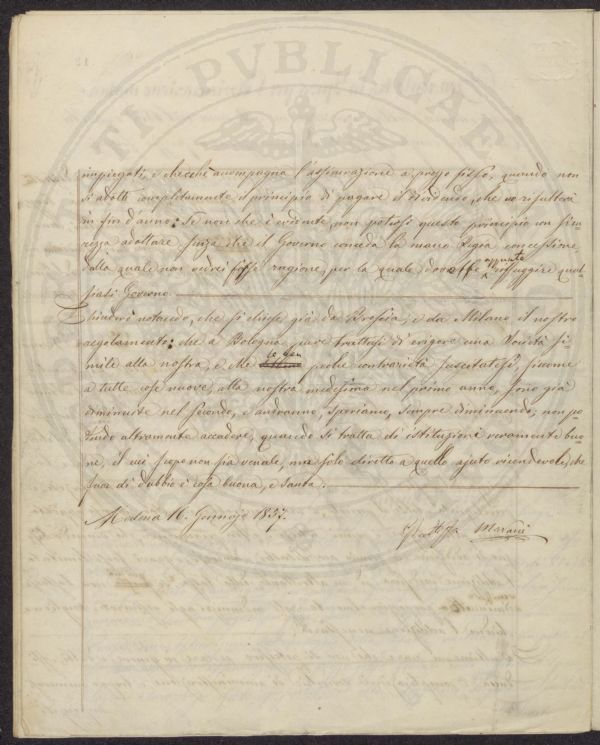 impiegati, e checchè accompagna l'assicurazione a prezzo fisso, quando non
si adotti completamente il principio di pagare il dividendo, che ne risulterà
in fin d'anno: Se non che è evidente, non potersi questo principio con sicu-
rezza adottare senza che il Governo conceda la mano Regia concessione
dalla quale non vedrei fosse ragione, per la quale dovesse appunto rifuggire qual-
siasi Governo.
Chiuderò notando, che si chiese già da Brescia, e da Milano il nostro
regolamento: che a Bologna pure trattasi di erigere una Società si-
mile alla nostra, e che le poche contrarietà suscitatesi, siccome
a tutte cose nuove, alla nostra medesima nel primo anno, sono già
diminuite nel secondo, e andranno, speriamo, sempre diminuendo; non po-
tendo altramente accadere, quando si tratta di istituzioni veramente buo-
ne, il cui scopo non sia venale, ma solo diretto a quello ajuto vicendevole, che
fuor di dubbio è cosa buona, e santa.
Modena 16. Gennajo 1857.